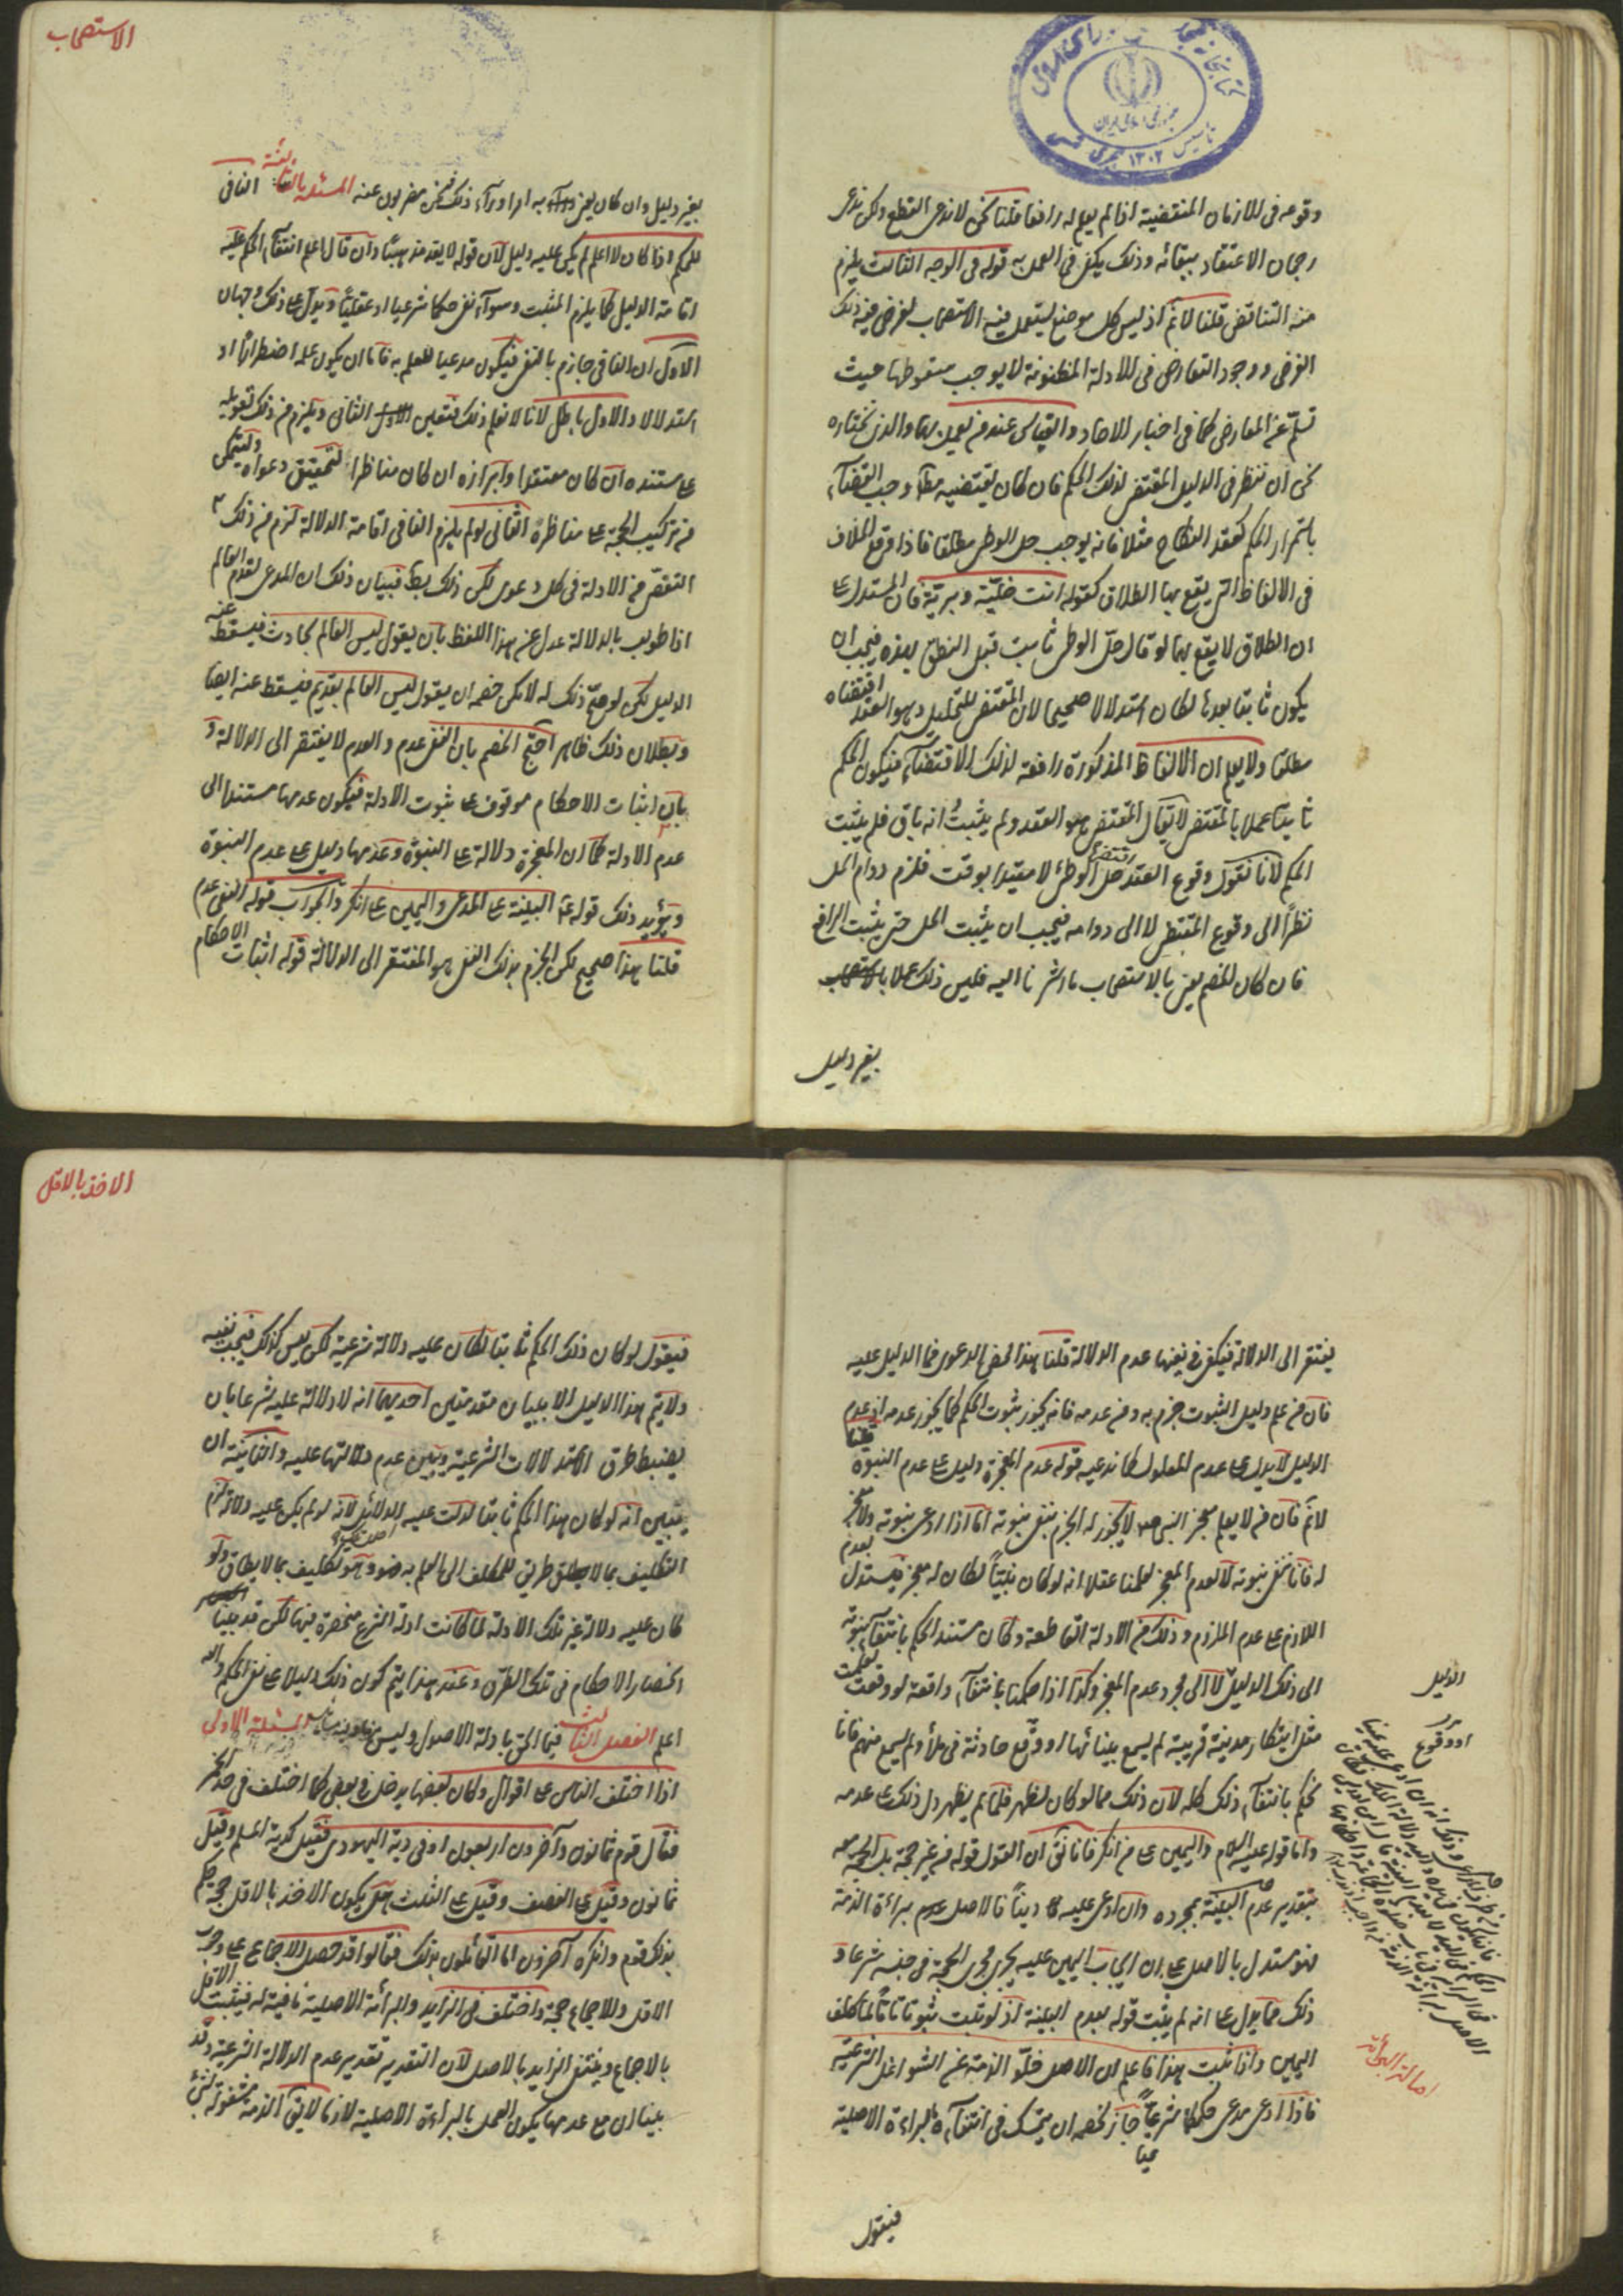 الاستصحاب
وقوعه فى الازمان المنقضية اذا لم يعلم له رافعا قلنا نحن لا ندعى القطع ولكن ندعى
رجحان الاعتقاد ببقائه وذلك يكفى فى العمل به قوله فى الوجه الثالث يلزم
منه التناقض قلنا لا نم اذ ليس كل موضع يستعمل فيه الاستصحاب يفرض فيه ذلك
الفرض ووجود التعارض فى الادلة المظنونة لا يوجب سقوطها حيث
تسلم عن المعارض كما فى اخبار الاحاد والقياس عند من يعمل بهما والذى نختاره
نحن ان ننظر فى الدليل المقتضى لذلك الحكم فان كان يقتضيه مطلقا وجب القضاء
باستمرار الحكم كعقد النكاح مثلا فانه يوجب حل الوطى مطلقا فاذا وقع الخلاف
فى الالفاظ التى يقع بها الطلاق كقوله انت خلية وبرية فان المستدل على
ان الطلاق لا يقع بهما لو قال حل الوطى ثابت قبل النطق بهذه فيجب ان
يكون ثابتا بعدها لكان استدلالا صحيحا لان المقتضى للتحليل وهو العقد اقتضاه
مطلقا ولا يعلم ان الالفاظ المذكورة رافعة لذلك الاقتضاء فيكون الحكم
ثابتا عملا بالمقتضى لا يقال المقتضى هو العقد ولم يثبت انه باق فلم يثبت
الحكم لانا نقول وقوع العقد اقتضى حل الوطى لا مقيدا بوقت فلزم دوام الحل
نظرا الى وقوع المقتضى لا الى دوامه فيجب ان يثبت الحل حتى يثبت الرافع
فان كان الخصم يعنى بالاستصحاب ما اشرنا اليه فليس ذلك عملا بالاستصحاب
بغير دليل
بغير دليل وان كان يعنى به امرا وراء ذلك فنحن مضربون عنه المسئلة الثالثة النافى
للحكم اذا كان لا اعلم لم يكن عليه دليل لان قوله لا يعد مذهبا وان قال اعلم انتفاء الحكم عليه
اقامة الدليل كما يلزم المثبت وسواء نفى حكما شرعيا او عقليا ويدل على ذلك وجهان
الاول ان النافى جازم بالنفى فيكون مدعيا للعلم به فاما ان يكون علمه اضطرارا او
استدلالا والاول باطل لانا لا نعلم ذلك فتعين الثانى ويلزم من ذلك تعويله
على مستنده ان كان معتقدا وابرازه ان كان مناظرا لتحقيق دعواه وليتمكن
من تركيب الحجة على مناظرة الثانى لو لم يلزم النافى اقامة الدلالة لزم من ذلك
التفصى من الادلة فى كل دعوى لكن ذلك بط فبيان ذلك ان المدعى لقدم العالم
اذا طولب بالدلالة عدل عن هذا اللفظ بان يقول ليس العالم بحادث فيسقط عنه
الدليل لكن لو صح ذلك له لامكن خصمه ان يقول ليس العالم بقديم فيسقط عنه ايضا
وبطلان ذلك ظاهر احتج الخصم بان النفى عدم والعدم لا يفتقر الى الدلالة و
بان اثبات الاحكام موقوف على ثبوت الادلة فيكون عدمها مستندا الى
عدم الادلة كما ان المعجزة دلالة على النبوة وعدمها دليل على عدم النبوة
ويؤيد ذلك قوله ع البينة على المدعى واليمين على من انكر والجواب قوله النفى عدم
قلنا هذا صحيح لكن الجزم بذلك النفى هو المفتقر الى الدلالة قوله اثبات الاحكام
الاخذ بالاقل
يفتقر الى الدلالة فيكفى فى نفيها عدم الدلالة قلنا هذا محض الدعوى فما الدليل عليه
فان من علم دليل الثبوت جزم به ومن عدمه فانه يجوز ثبوت الحكم كما يجوز عدمه اذ عدم
الدليل لا يدل على عدم المدلول كما ندعيه قوله عدم المعجزة دليل على عدم النبوة قلنا
لا نم فان من لا يعلم معجز النبى صلعم لا يجوز له الجزم بنفى نبوته اما اذا ادعى نبوته ولا معجز
له فانا ننفى نبوته لا لعدم المعجز لعلمنا عقلا انه لو كان نبيا لكان له معجز فيستدل بعدم
اللازم على عدم الملزوم وذلك من الادلة القاطعة وكان مستند الحكم بانتفاء نبوته
الى ذلك الدليل لا الى مجرد عدم المعجز وكذا اذا حكمنا بانتفاء واقعة لو وقعت لعلمت
مثل ابتكار مدينة قريبة لم يسمع ببنائها او وقع حادثة فى ملأ ولم يسمع منهم فانا
نحكم بانتفاء ذلك كله لان ذلك مما لو كان لظهر فلما لم يظهر دل ذلك على عدمه
واما قوله عليه السلام واليمين على من انكر فانا نقول ان القول قوله من غير حجة بل الحجة معه
بتقدير عدم البينة بمجرده وان ادعى عليه دينا فالاصل براءة الذمة
فهو مستدل بالاصل على ان ايجاب اليمين عليه يجرى مجرى الحجة فى جنبه شرعا و
ذلك مما يدل على انه لم يثبت قوله بعدم البينة اذ لو ثبت ثبوتا تاما لما كلف
اليمين واذا ثبت هذا فاعلم ان الاصل خلو الذمة عن الشواغل الشرعية
فاذا ادعى مدعى حكما شرعيا جاز لخصمه ان يتمسك فى انتفاءه بالبراءة الاصلية
فيقول
الدليل
او وقوع
اصالة البرائة
فيقول لو كان ذلك الحكم ثابتا لكان عليه دلالة شرعية لكن ليس كذلك فيجب نفيه
ولا يتم هذا الدليل الا ببيان مقدمتين احديهما انه لا دلالة عليه شرعا بان
يضبط طرق الاستدلالات الشرعية ويبين عدم دلالتها عليه والثانية ان
يتبين انه لو كان هذا الحكم ثابتا لدلت عليه الدلائل لانه لو لم يكن عليه دلالة لزم
التكليف بما لا طريق للمكلف الى العلم به وهو تكليف بما لا يطاق ولو
كان عليه دلالة غير تلك الادلة لما كانت ادلة الشرع منحصرة فيها لكن قد بينا
انحصار الاحكام فى تلك الطرق وعند هذا يتم كون ذلك دليلا على نفى الحكم والله
اعلم الفصل الثالث فيما الحق بادلة الاصول وليس منها وفيه مسائل المسئلة الاولى
اذا اختلف الناس على اقوال وكان بعضها يدخل فى بعض كما اختلف فى حد الخمر
فقال قوم ثمانون وآخرون اربعون او فى دية اليهودى فقيل كدية المسلم وقيل
ثمانون وقيل على النصف وقيل على الثلث هل يكون الاخذ بالاقل حجة حكم
بذلك قوم وانكره آخرون اما القائلون بذلك فقالوا قد حصل الاجماع على وجوب
الاقل والاجماع حجة واختلف فى الزايد والبرائة الاصلية نافية له فيثبت الاقل
بالاجماع وينتفى الزايد بالاصل لان التقدير تقدير عدم الدلالة الشرعية وقد
بينا ان مع عدمها يكون العمل بالبراءة الاصلية لازما لا يق الذمة مشغولة بشئ